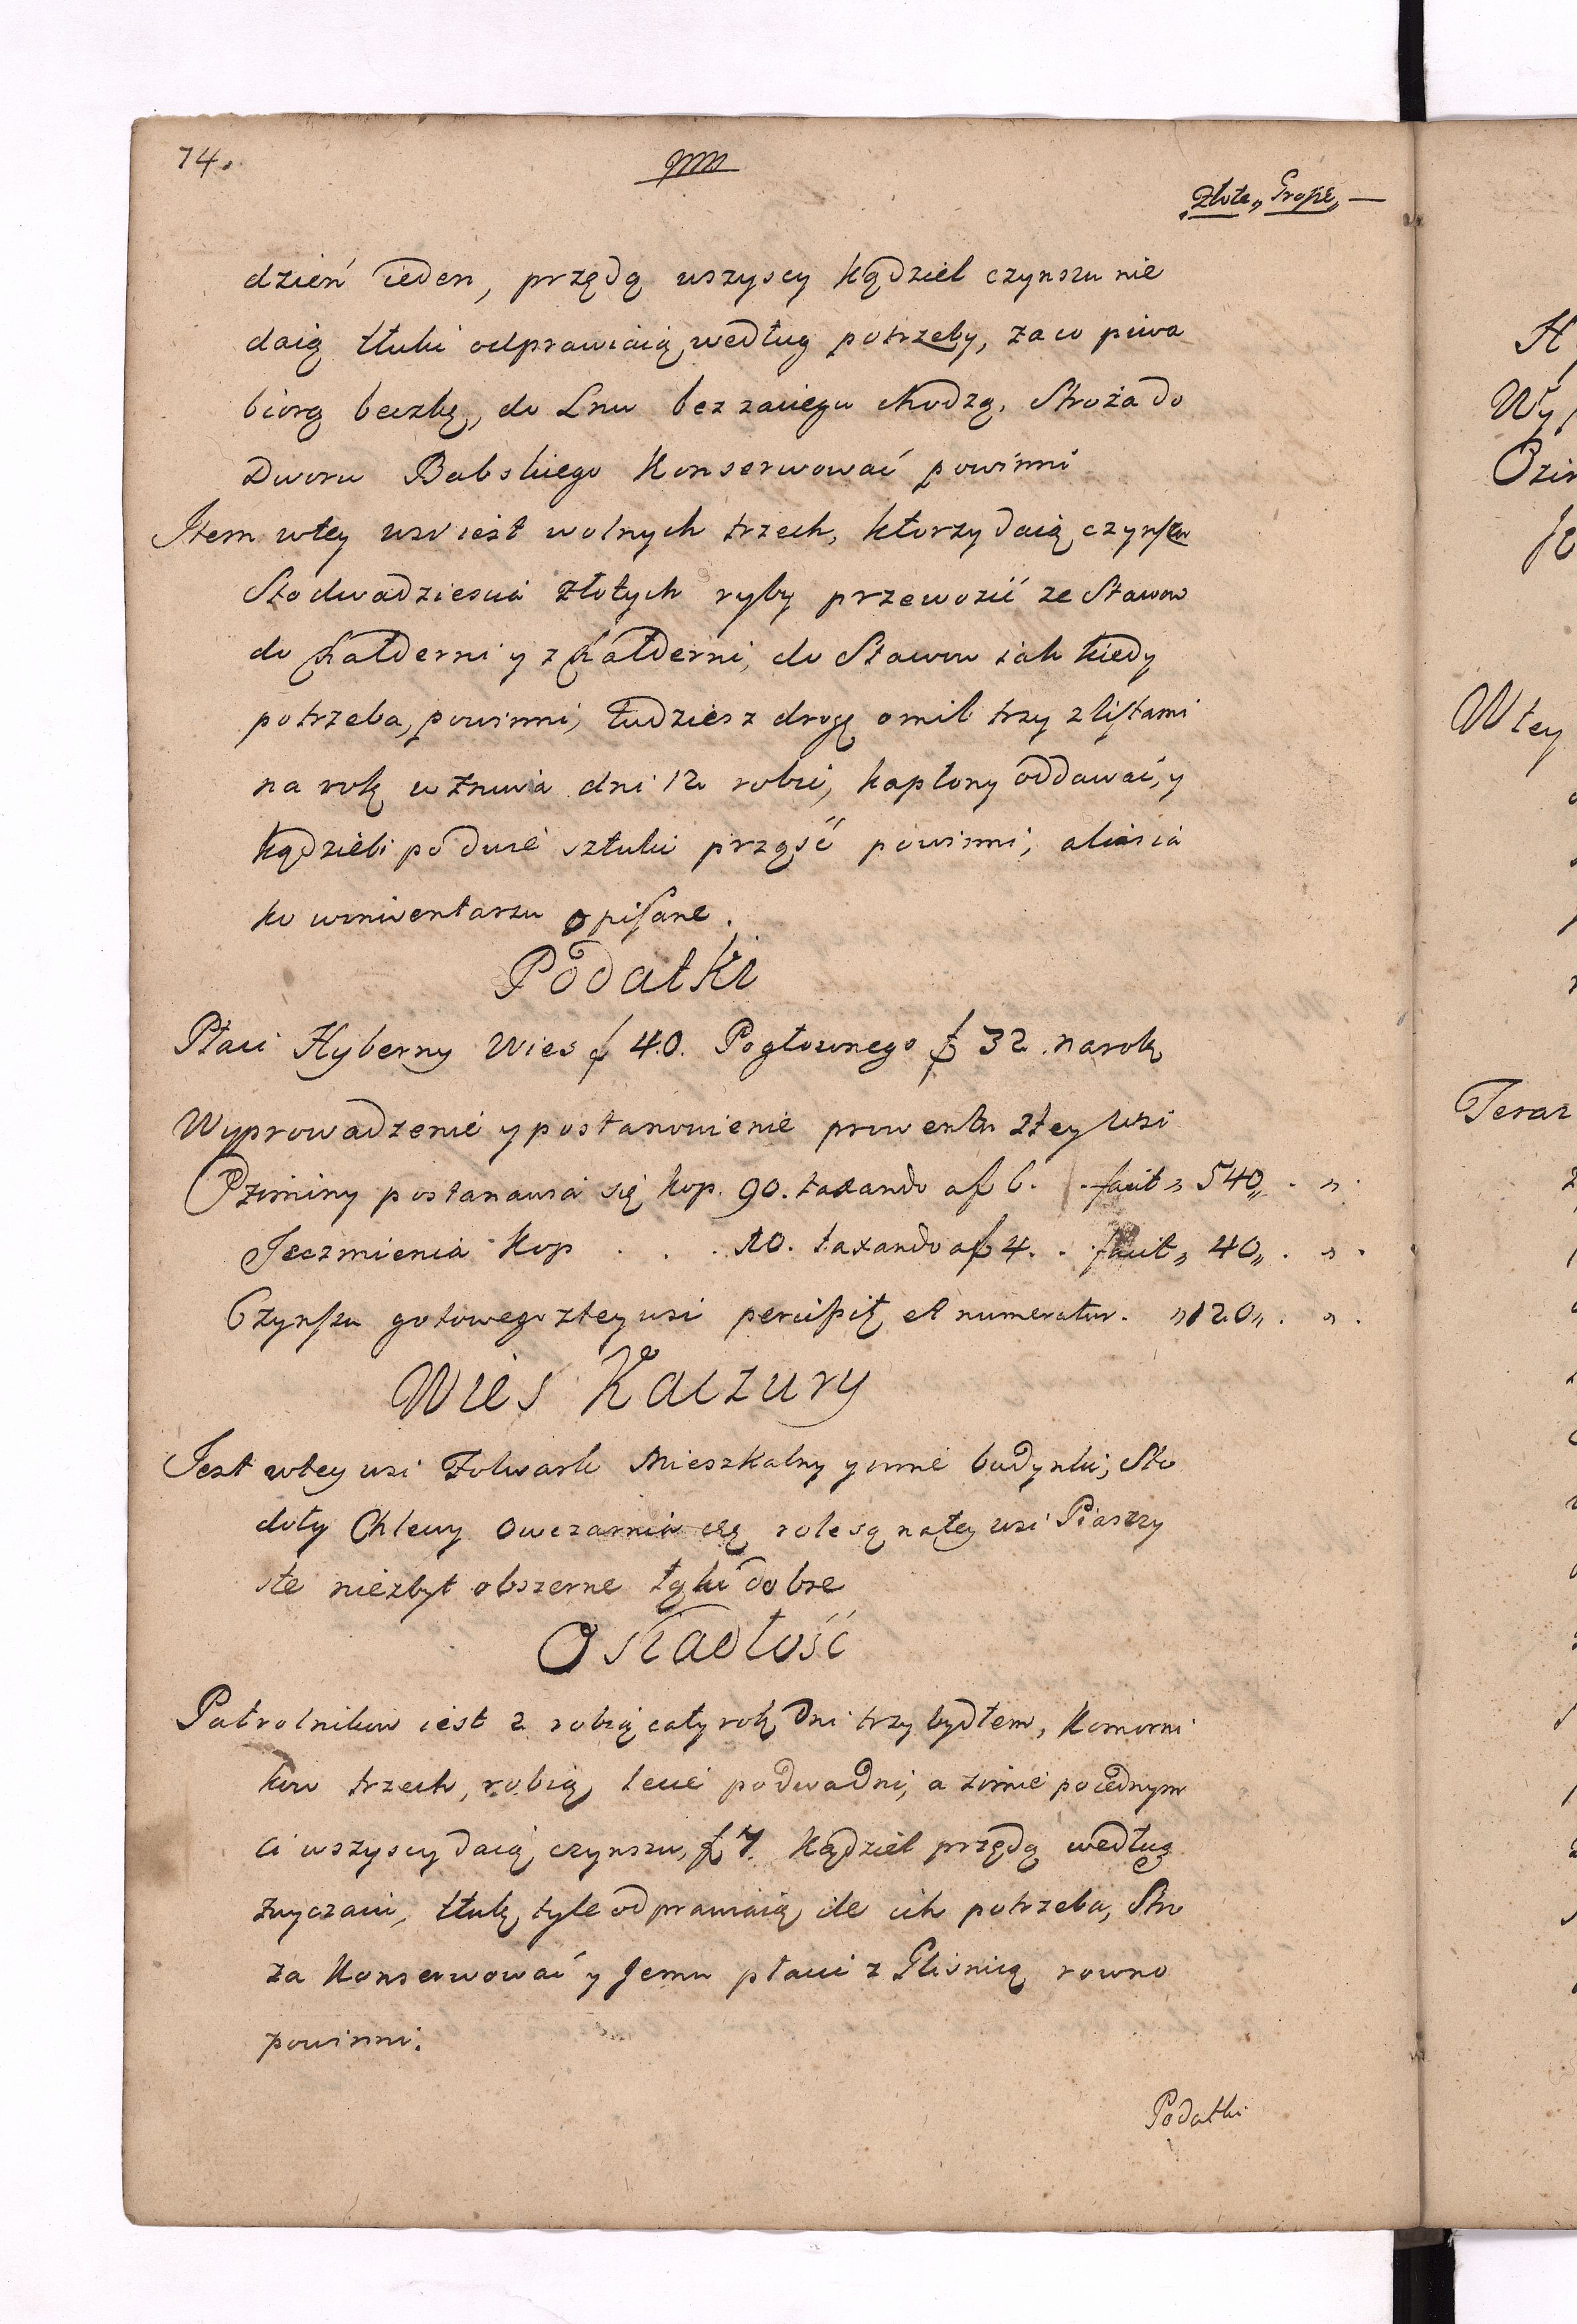 74.
Złote„ Grosze„ —
dzień ieden, przędą wszyscy kądziel czynszu nie
daią tłuki odprawiaią według potrzeby, za co piwa
biorą beczkę, do Lnu bez zaciegu chodzą, Stroża do
Dworu Babskiego Konserwować powinni
Item wtey wsi iest wolnych trzech, ktorzy daią czynszu
Stodwadziescia złotych ryby przewozić ze Stawow
do Kałderni y z Kałderni, do Stawow iak kiedy
potrzeba, powinni, tudziesz drogę o mil trzy z listami
na rok w żniwa dni 12 robić, kapłony oddawać, y
kądzieli po dwie sztuki prząść powinni, alias ia
ko w inwentarzu opisane.
Podatki
Płaci Hyberny Wies f 40. Pogłownego f 32. na rok
Wyprowadzenie y postanowienie prowentu z tey wsi
Oziminy postanawia się kop. 90. taxando a f 6. . facit „ 540„ . „ .
Jęczmienia Kop . . . 10. taxando a f 4. . facit „ 40„ . „ .
Czynszu gotowego z tey wsi percipit et numeratur. „120„ . „ .
Wieś Kaczury
Jest wtey wsi Folwark Mieszkalny y inne budynki, Sto
doły Chlewy Owczarnia etc role są na tey wsi Piaszczy
ste niezbyt obszerne łąki dobre
Osiadłość
Połrolnikow iest 2 robią cały rok Dni trzy bydłem, Komorni
kow trzech, robią lecie po dwa Dni, a zimie po iednym
ci wszyscy daią czynszu, f 7. Kądziel przędą według
zwyczaiu, tłukę tyle odprawiaią ile ich potrzeba, Stro
ża Konserwować y Jemu płacić z Gliśnicą rowno
powinni.
Podatki